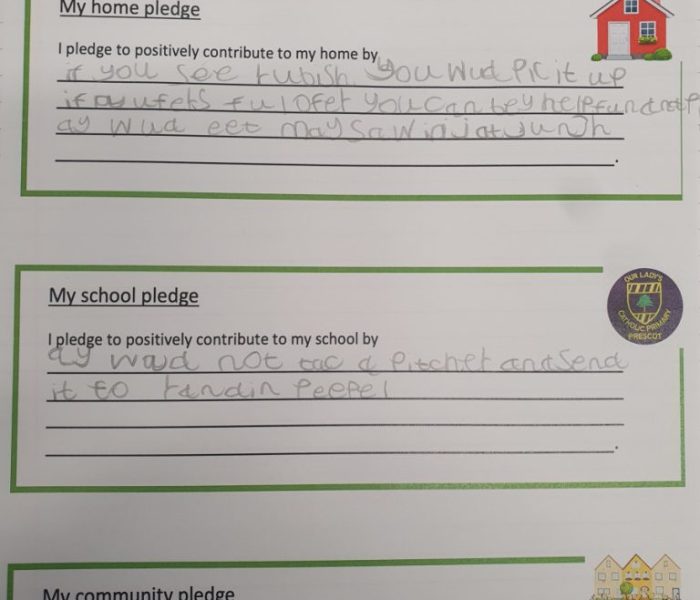 My home pledge
I pledge to positively contribute to my home by
if you see rubish you wud pic it up
if
you can
help
ay wud eet may
My school pledge
OUR LADY'S
CATHOLIC PRIMARY
PRESCOT
I pledge to positively contribute to my school by
ay wud not tac a pitcher and send
it to randin peepel
My community pledge